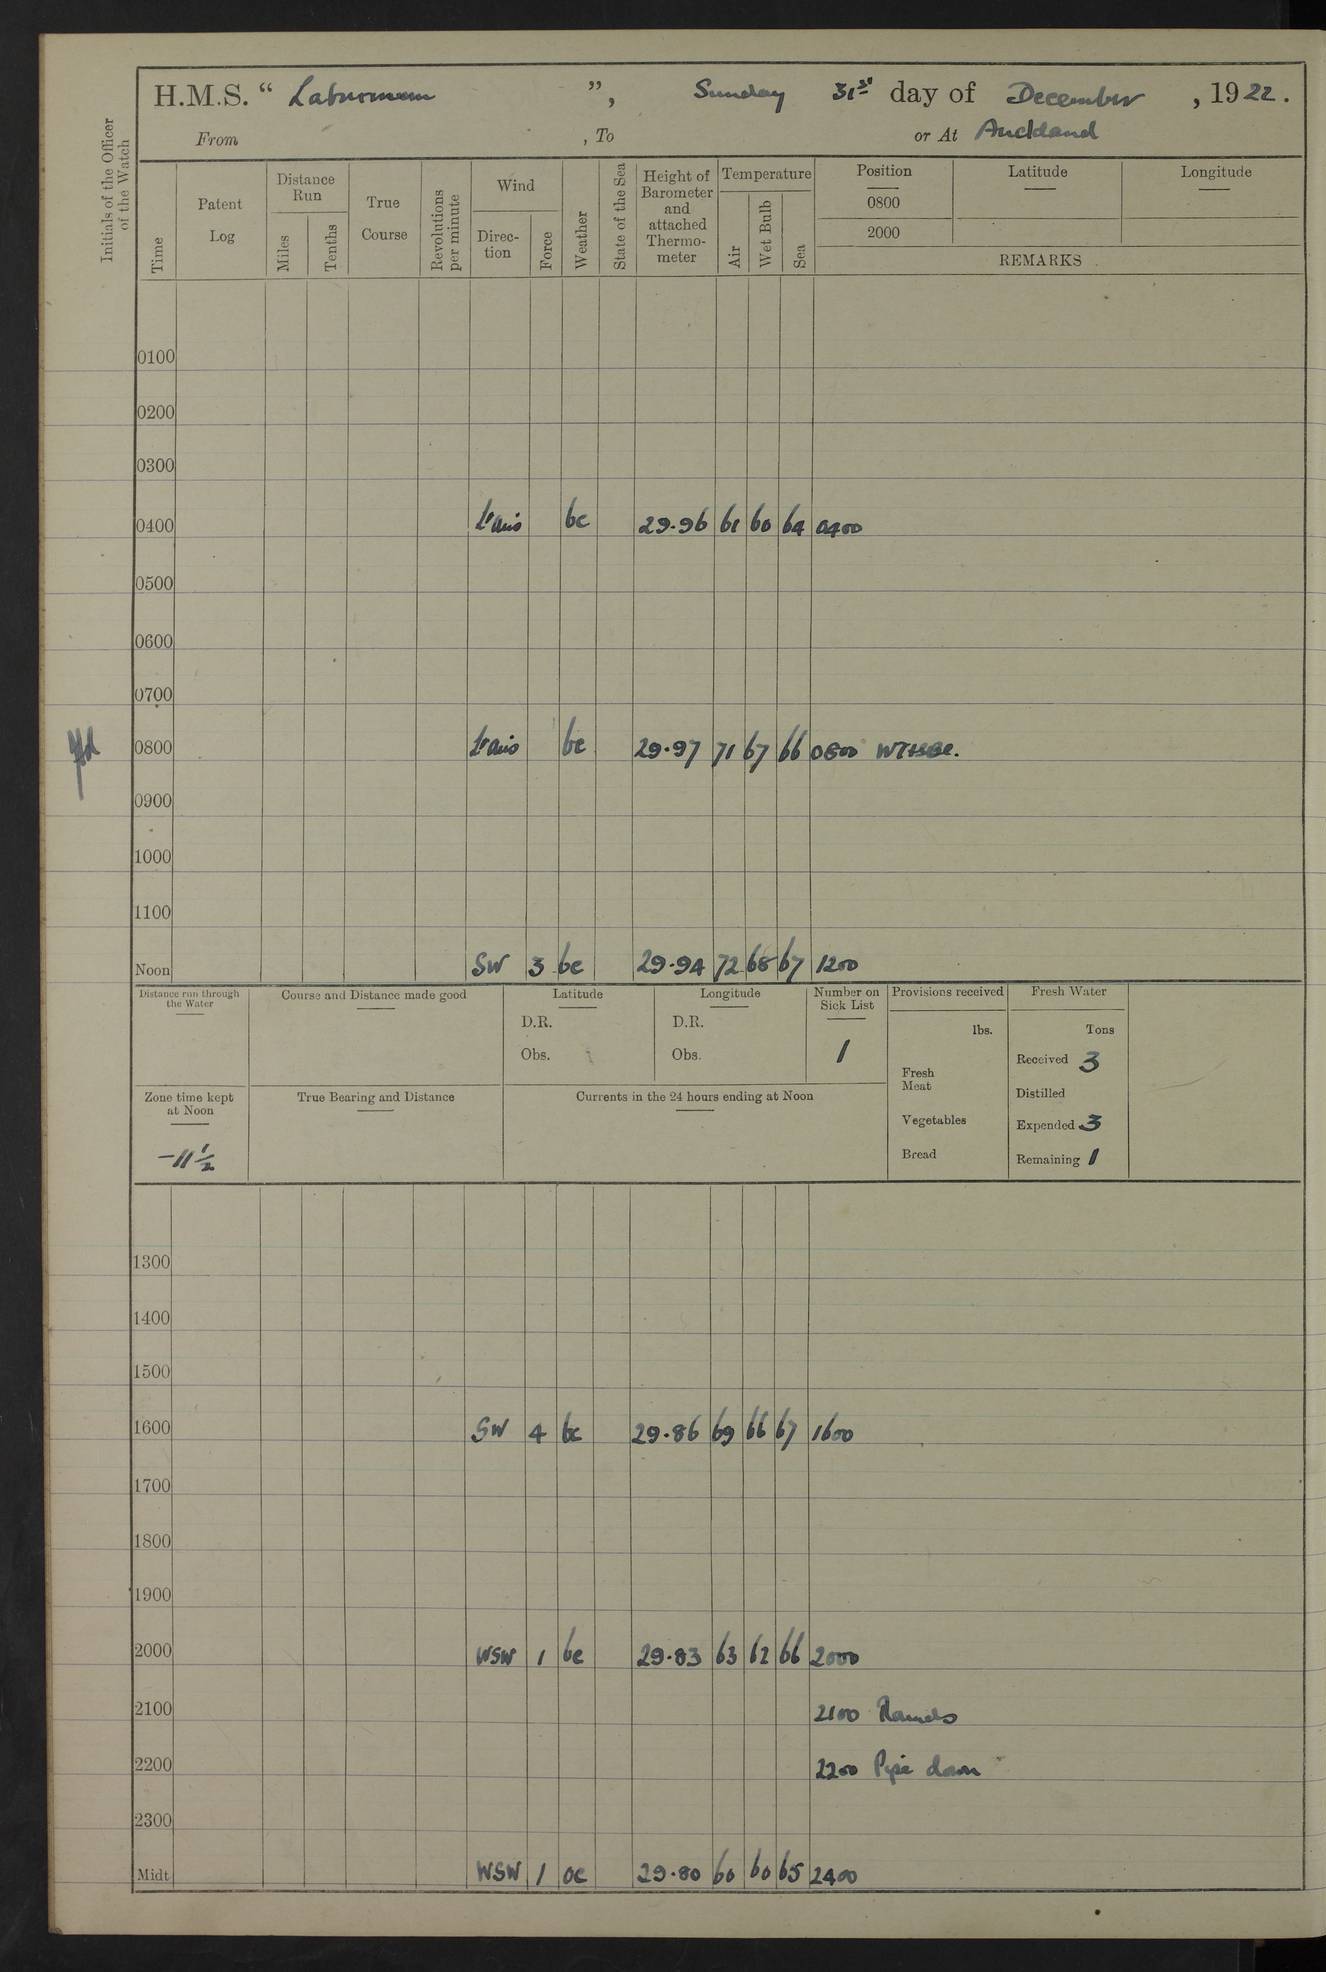 H.M.S. “ Laburnum ”, Sunday 31st day of December , 1922.
From , To or At Auckland
Initials of the Officer of the Watch
Time
Patent Log
Distance Run
Miles
Tenths
True Course
Revolutions per minute
Wind
Direc- tion
Force
Weather
State of the Sea
Height of Barometer and attached Thermo- meter
Temperature
Air
Wet Bulb
Sea
Position
Latitude
Longitude
0800
2000
REMARKS
0100
0200
0300
0400 bc 29.96 61 60 64 0400
0500
0600
0700
0800 bc 29.97 71 67 66 0800
0900
1000
1100
Noon SW 3 bc 29.94 72 68 67 1200
Distance run through the Water
Course and Distance made good
Latitude
D.R.
Obs.
Longitude
D.R.
Obs.
Number on Sick List
1
Provisions received
lbs.
Fresh Meat
Vegetables
Bread
Fresh Water
Tons
Received 3
Distilled
Expended 3
Remaining 1
Zone time kept at Noon
-11½
True Bearing and Distance
Currents in the 24 hours ending at Noon
1300
1400
1500
1600 SW 4 bc 29.86 69 66 67 1600
1700
1800
1900
2000 WSW 1 bc 29.83 63 62 66 2000
2100 2100 Rounds
2200 2200 Pipe down
2300
Midt. WSW 1 oc 29.80 60 60 65 2400